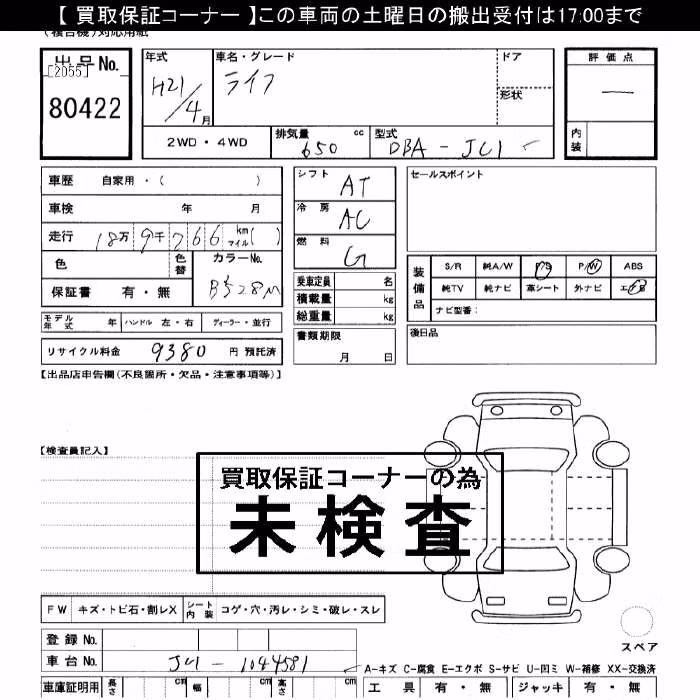 【 買取保証コーナー 】この車両の土曜日の搬出受付は17:00まで
出品No.
[2055]
80422
年式
H21/4月
車名・グレード
ライフ
ドア
形状
評価点
—
内装
2WD・4WD
排気量 650 cc
型式 DBA-JC1
車歴 自家用・( )
車検 年 月
走行 18万9千766 km マイル( )
色
色替
カラーNo.
B528M
保証書 有・無
モデル年式 年
ハンドル 左・右
ディーラー・並行
リサイクル料金 9380 円 預託済
シフト AT
冷房 AC
燃料 G
乗車定員 名
積載量 kg
総重量 kg
書類期限
月 日
セールスポイント
装備品
S/R 純A/W P/S P/W ABS
純TV 純ナビ 革シート 外ナビ エアB
ナビ型番:
後日品
【出品店申告欄(不良箇所・欠品・注意事項等)】
【検査員記入】
買取保証コーナーの為
未検査
FW キズ・トビ石・割レX
シート内装 コゲ・穴・汚レ・シミ・破レ・スレ
スペア
登録No.
車台No. JC1-1044581
A-キズ C-腐食 E-エクボ S-サビ U-凹ミ W-補修 XX-交換済
車庫証明用 長さ cm 幅 cm 高さ cm
工具 有・無 ジャッキ 有・無